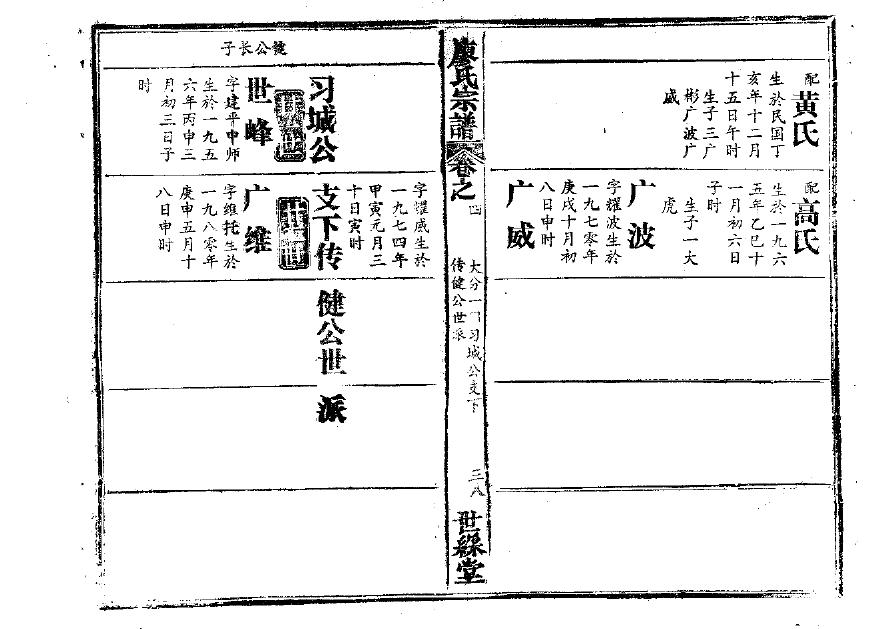 配
黄氏
生於民国丁
亥年十二月
十五日午时
生子三广
彬广波广
威
配
高氏
生於一九六
五年乙巳十
一月初六日
子时
生子一大
虎
广波
字耀波生於
一九七零年
庚戌十月初
八日申时
广威
廖氏宗譜
卷之
四
大分一门习城公支下
传健公世派
三八
世綵堂
字耀威生於
一九七四年
甲寅元月三
十日寅时
习城公
支下传
健公世
派
健公长子
世峰
字建平申师
生於一九五
六年丙申三
月初三日子
时
广维
字维托生於
一九八零年
庚申五月十
八日申时